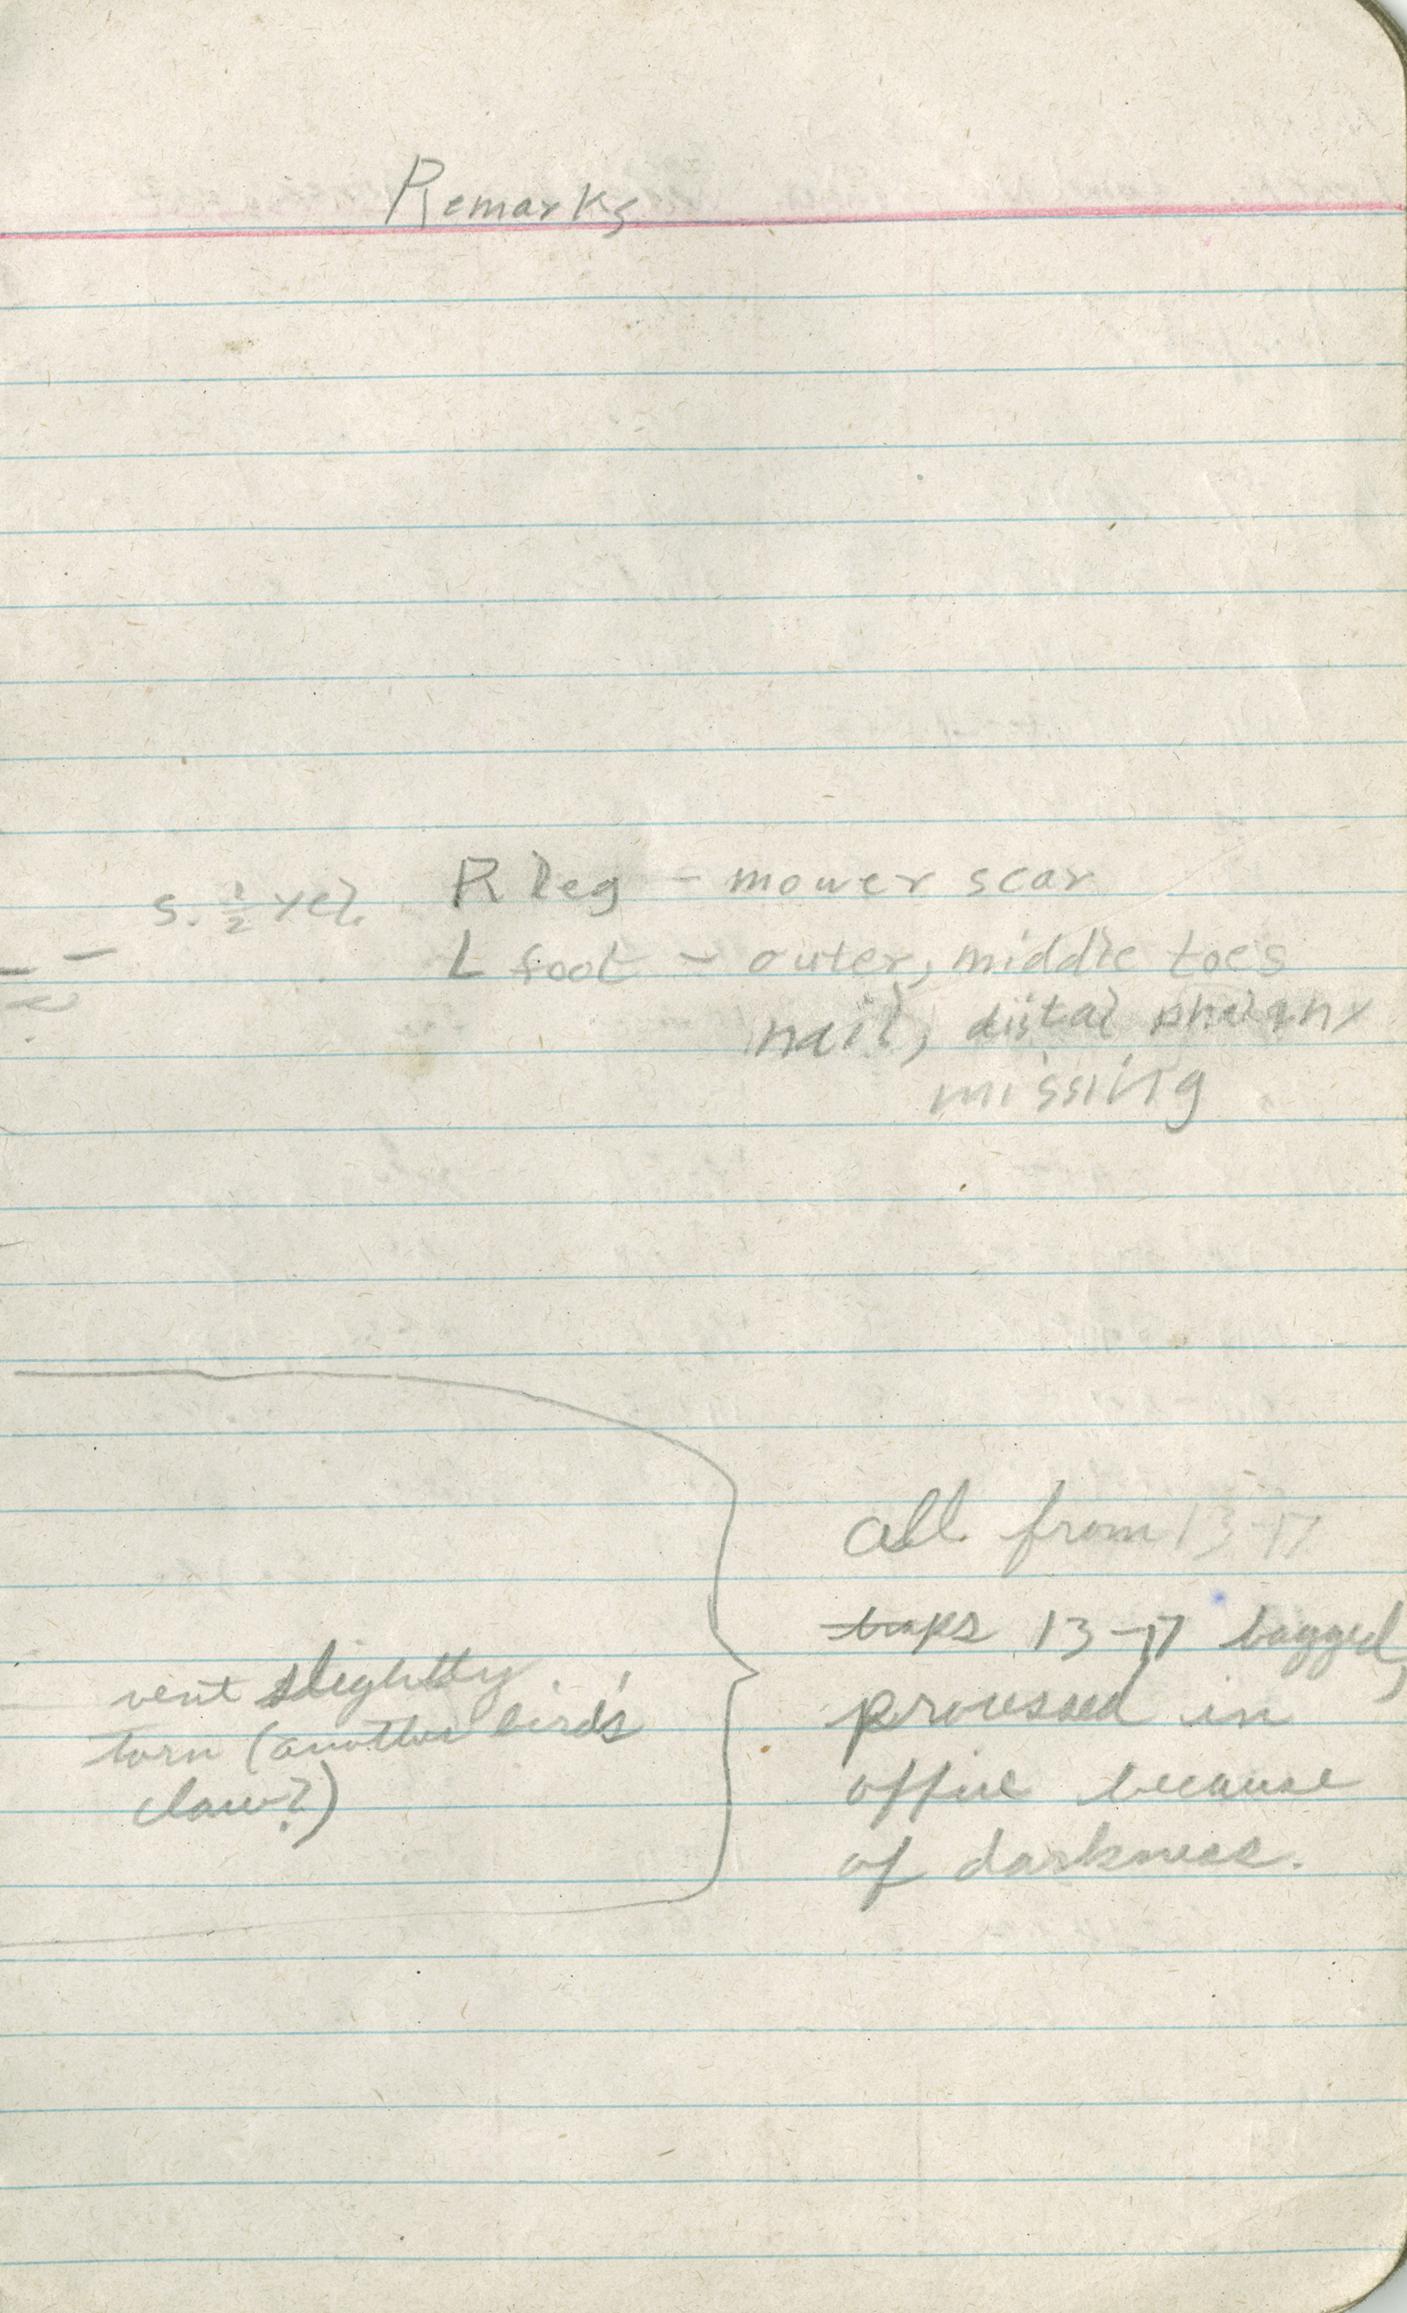 Remarks
s. ½ yel. R leg - mower scar
L foot - outer, middle toes
nail, distal phalanx
missing
all from 13-17
traps 13-17 bagged,
processed in
office because
of darkness.
vent slightly
torn (another bird's
claw?)